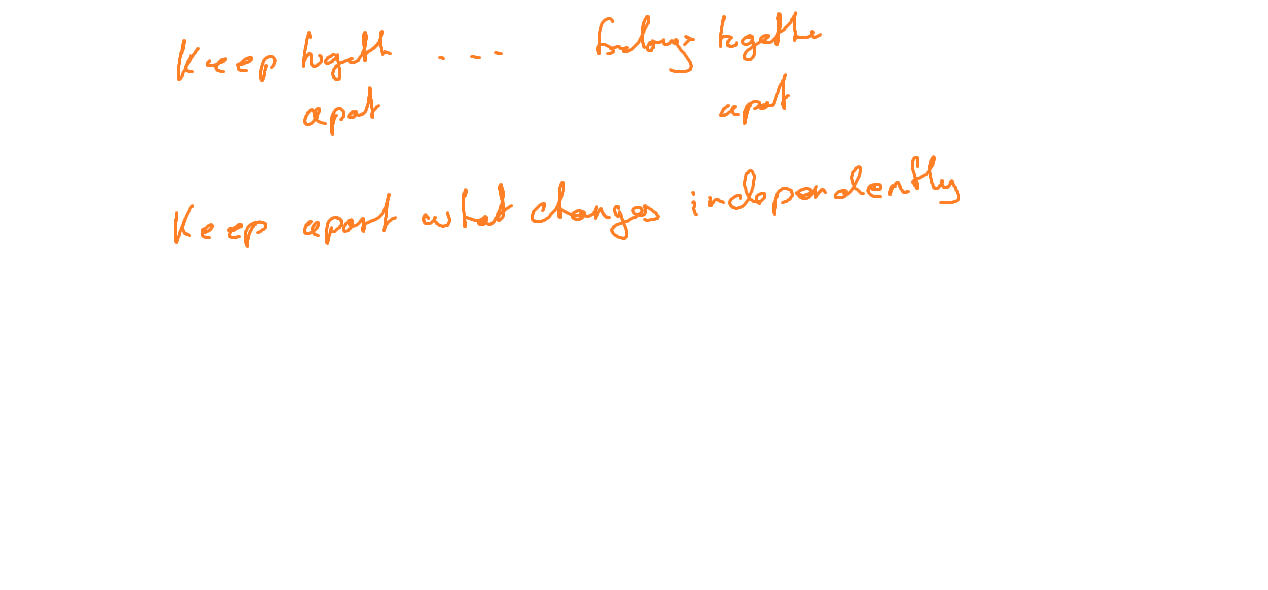 Keep togeth ... belongs togethe
apart apart
Keep apart what changes independently